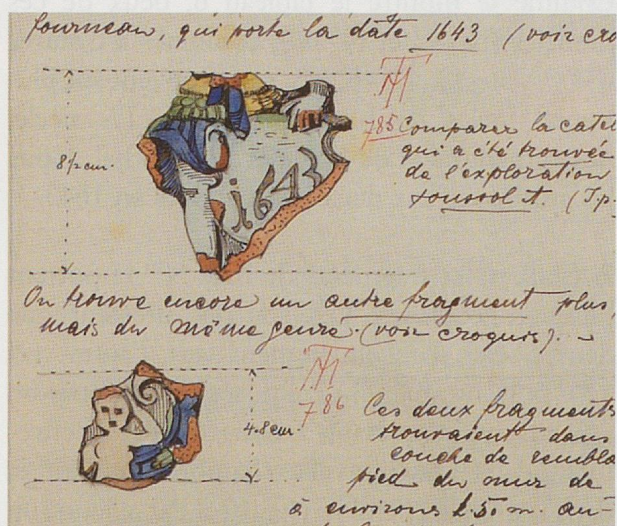 fourneau, qui porte la date 1643 (voir cro
785 Comparer la catel
qui a été trouvée
de l'exploration
soussol A. (J.p.
8½ cm.
1643
On trouve encore un autre fragment plus,
mais du même genre. (voir croquis). –
786
4.8 cm.
Ces deux fragments
trouvaient dans
couche de rembla
pied du mur de
à environs 1.50 m. au-